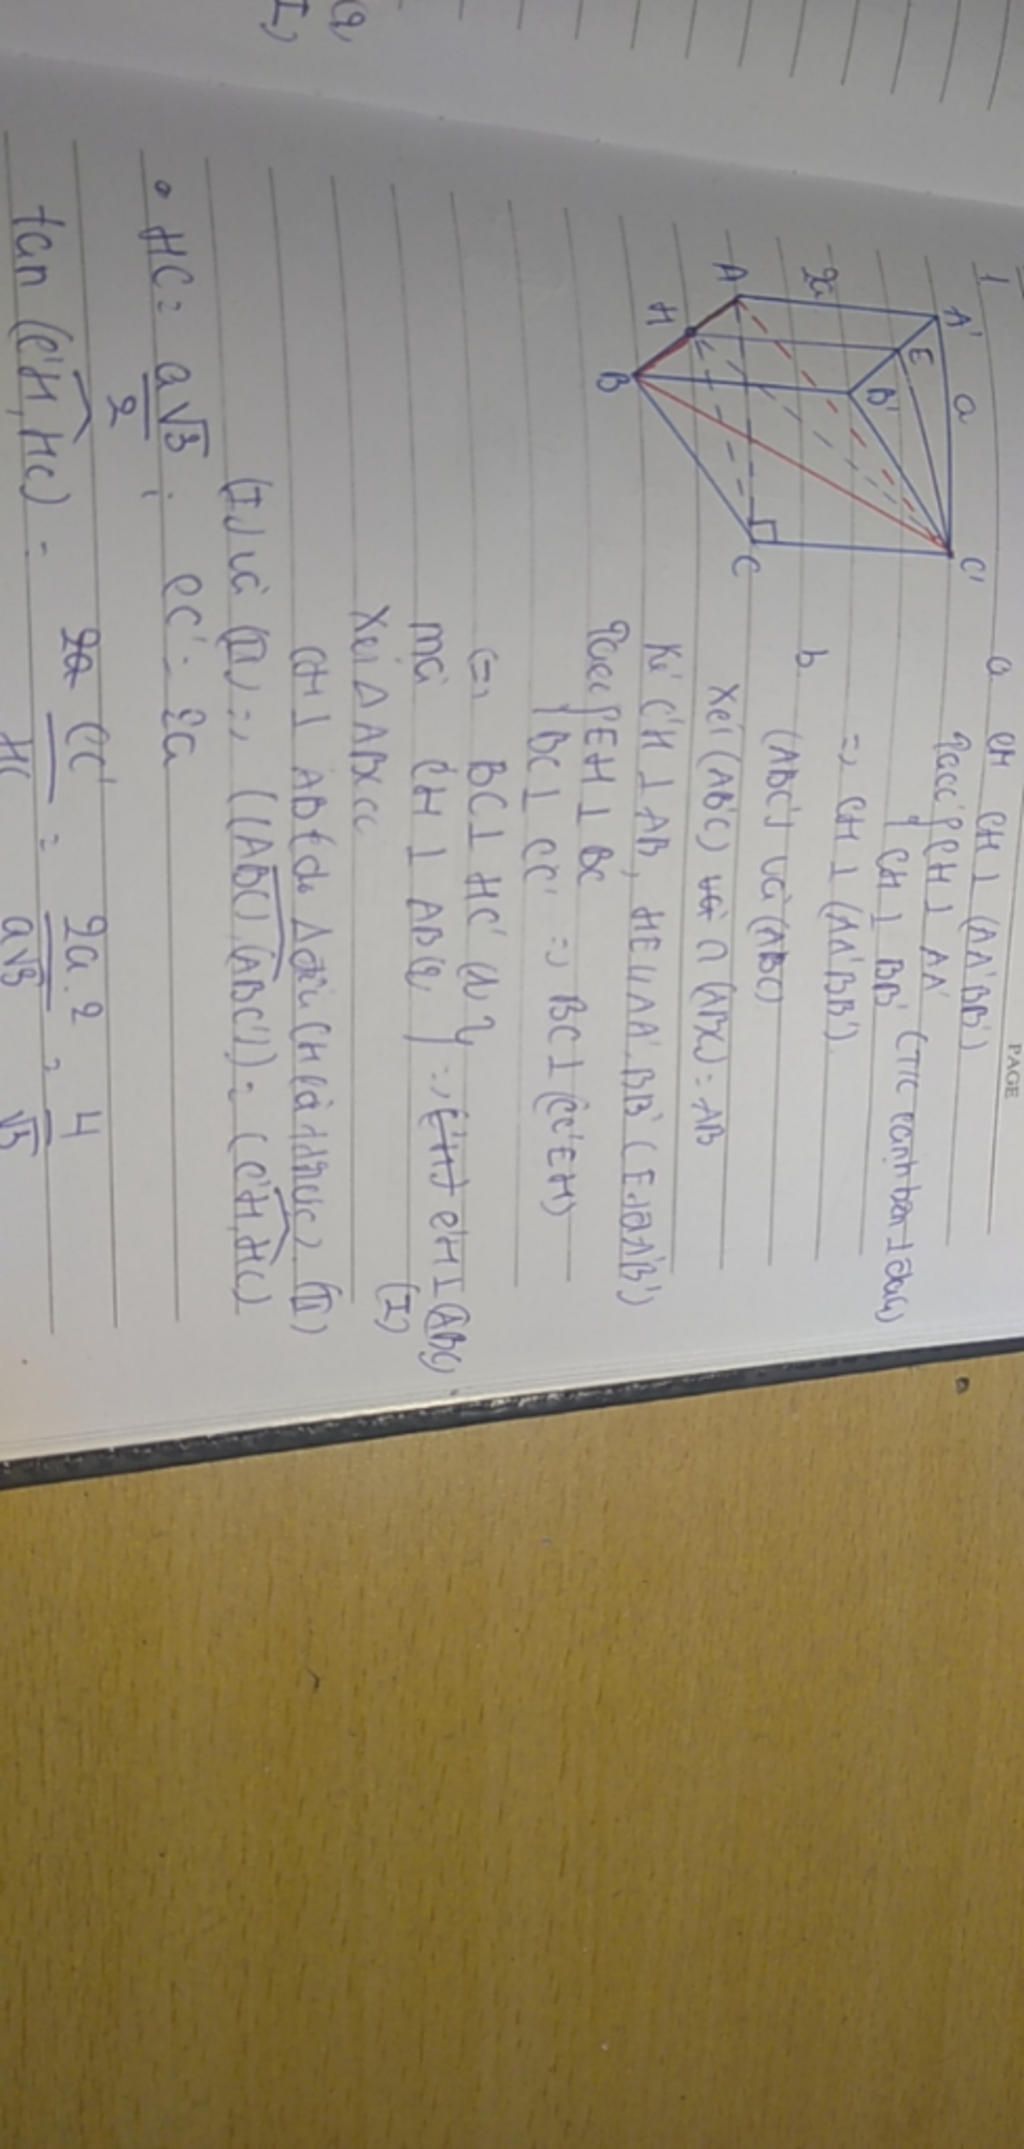 PAGE
1
A' a C'
E
B'
2a
A
H
B
C
a CM CH ⊥ (AA'BB')
Ta có { CH ⊥ AA'
CH ⊥ BB' (T/c cạnh bên ⊥ đáy)
=> CH ⊥ (AA'BB').
b (ABC') và (ABC)
Xét (AB'C) ∩ (ABC) = AB
Kẻ C'H ⊥ AB, HE // AA', BB' (E ∈ A'B')
Ta có { EH ⊥ BC
BC ⊥ CC' => BC ⊥ (CC'EH)
(=) BC ⊥ HC'
mà C'H ⊥ AB => C'H ⊥ (ABC).
(I)
Xét Δ ABC có
CH ⊥ AB (do Δ đều CH là đ/trực). (II)
(I) và (II) => ((ABC), (ABC')) = (C'H, HC)
• HC = a√3/2 ; CC' = 2a
tan (C'H, HC) = CC'/HC = 2a.2/a√3 = 4/√3